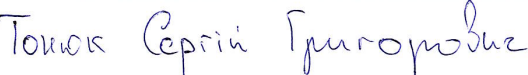 Тонюк Сергій Григорович